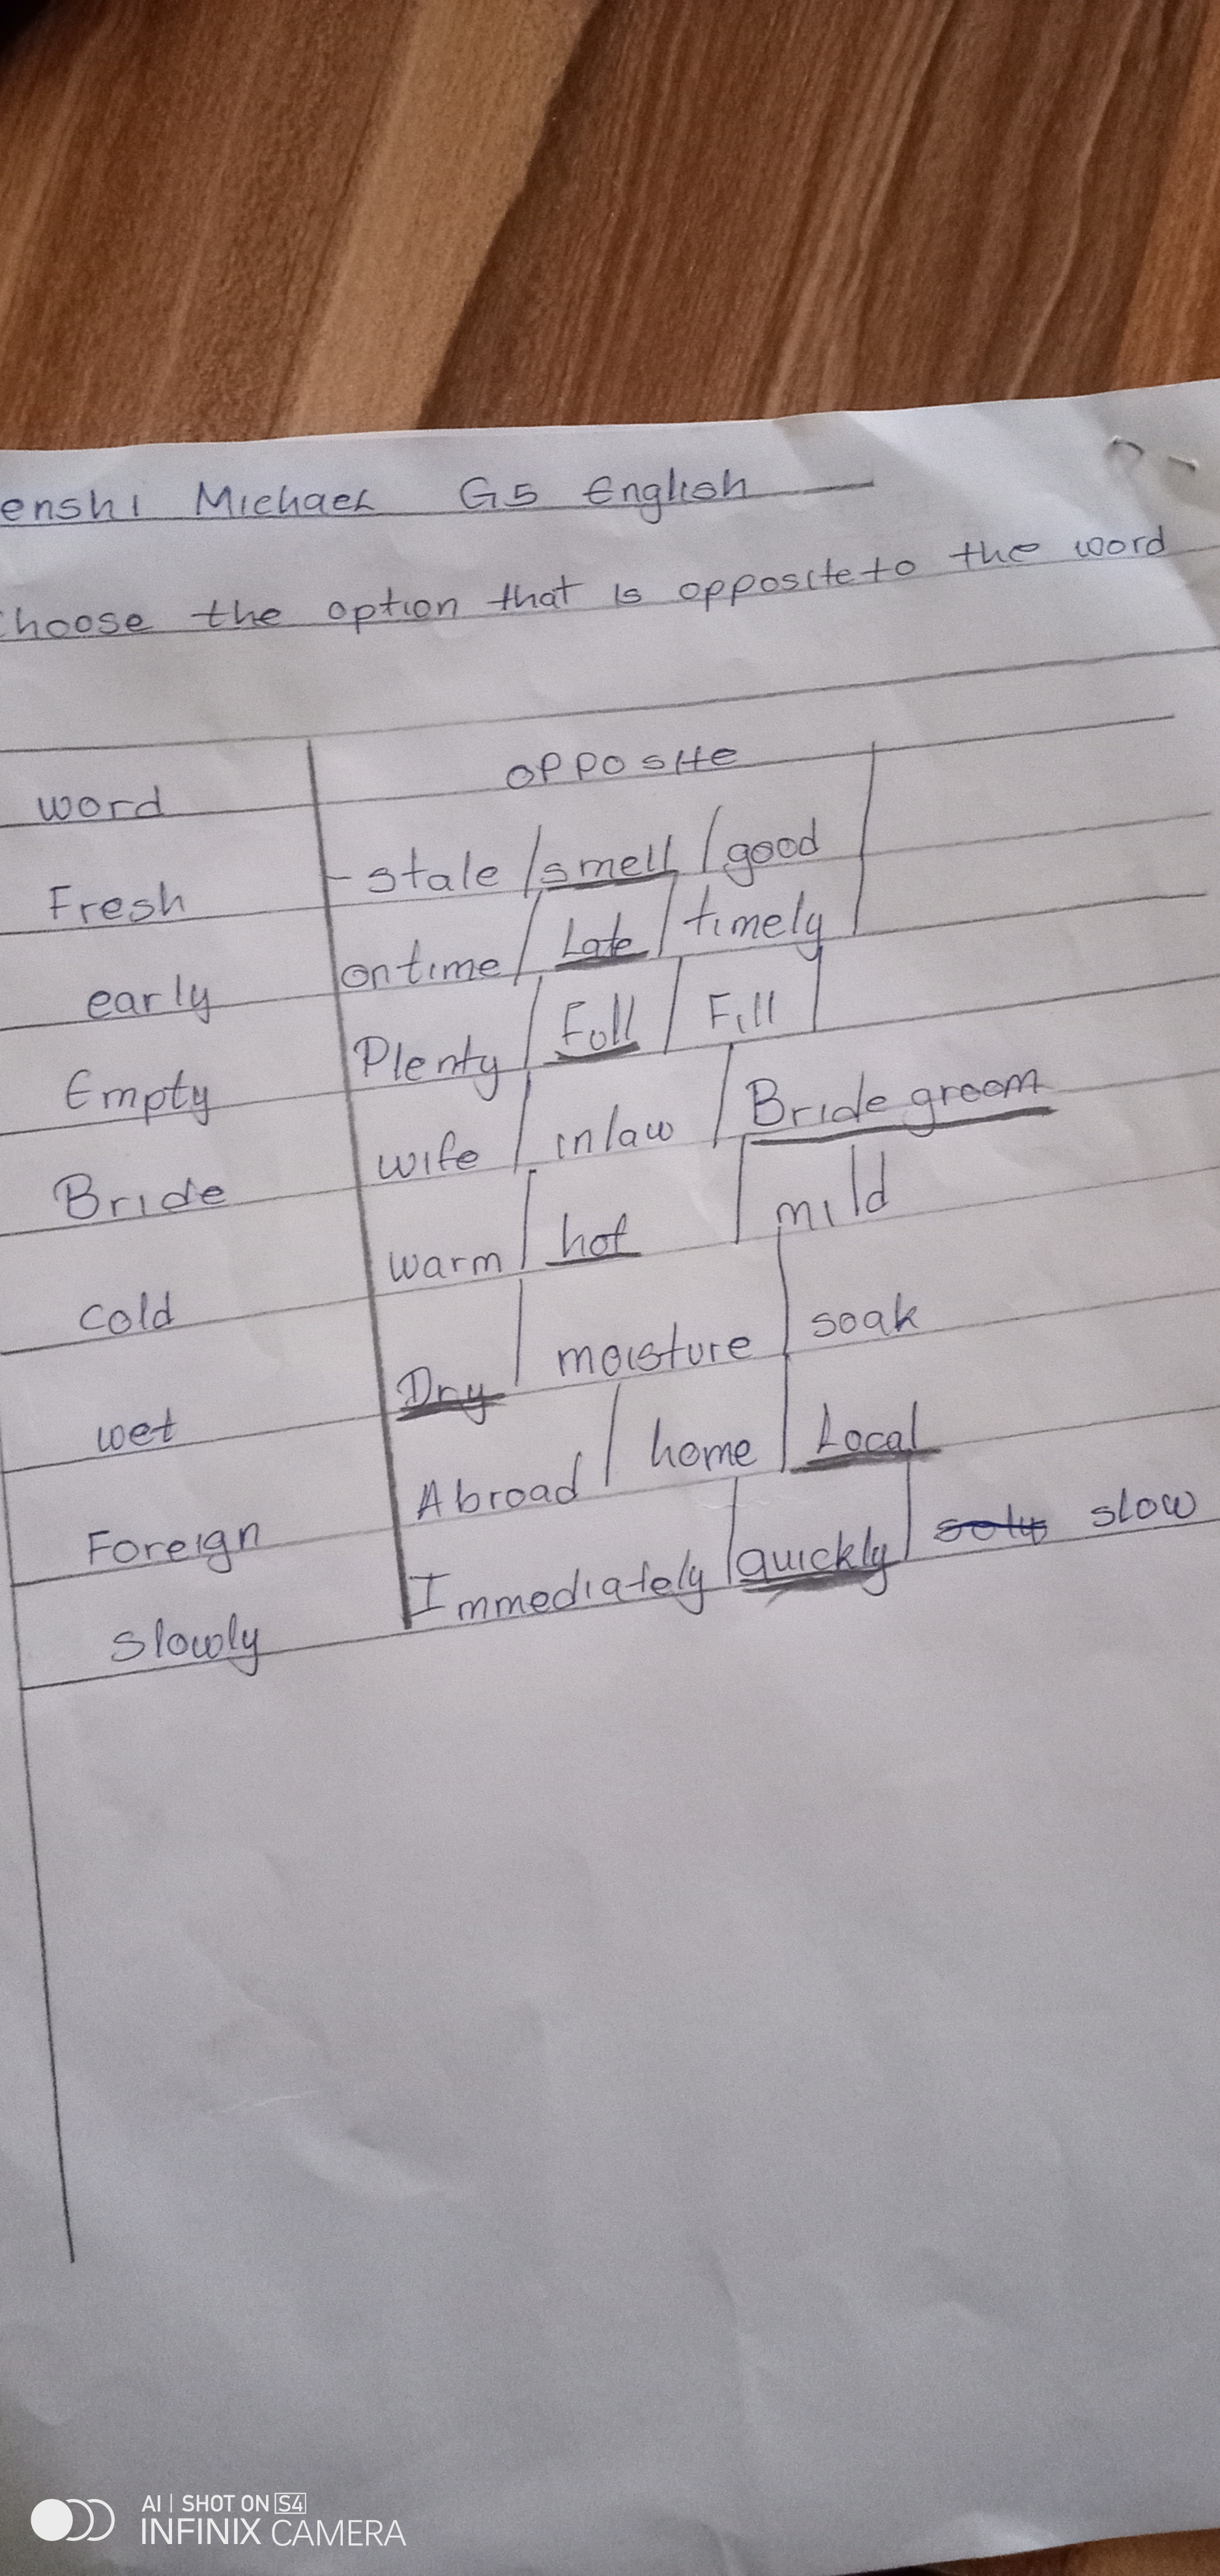 enshi Michael G5 English
Choose the option that is opposite to the word
word opposite
Fresh stale / smell / good
early ontime / Late / timely
Empty Plenty / Full / Fill
Bride wife / inlaw / Bride groom
cold warm / hot / mild
wet Dry / moisture / soak
Foreign Abroad / home / Local
slowly Immediately / quickly / slow
AI | SHOT ON S4
INFINIX CAMERA